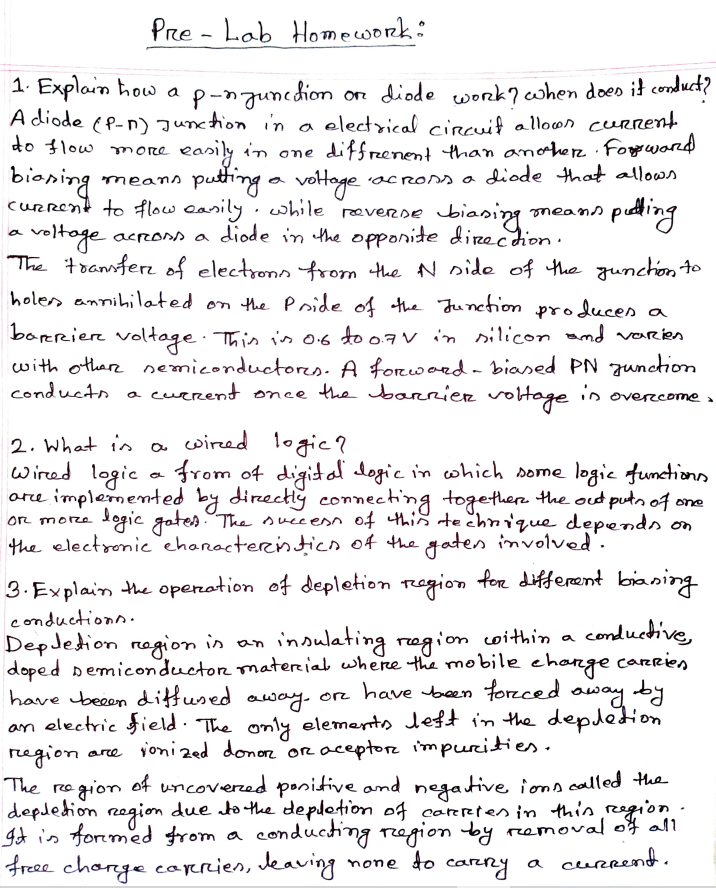 Pre - Lab Homework:
1. Explain how a p-n junction or diode work? when does it conduct?
A diode (P-n) Junction in a electrical circuit allows current
to flow more easily in one diffrenent than another. Forward
biasing means putting a voltage across a diode that allows
current to flow easily. while reverse biasing means putting
a voltage across a diode in the opposite direction.
The transfer of electrons from the N side of the junction to
holes annihilated on the P side of the Junction produces a
barrier voltage. This is 0.6 to 0.7V in silicon and varies
with other semiconductors. A forward-biased PN junction
conducts a current once the barrier voltage is overcome.
2. What is a wired logic?
Wired logic a from of digital logic in which some logic functions
are implemented by directly connecting together the outputs of one
or more logic gates. The success of this technique depends on
the electronic characteristics of the gates involved.
3. Explain the operation of depletion region for different biasing
conductions.
Depletion region is an insulating region within a conductive,
doped semiconductor material where the mobile charge carries
have been diffused away, or have been forced away by
an electric field. The only elements left in the depletion
region are ionized donor or aceptor impurities.
The region of uncovered positive and negative ions called the
depletion region due to the depletion of carries in this region.
It is formed from a conducting region by removal of all
free charge carries, leaving none to carry a current.